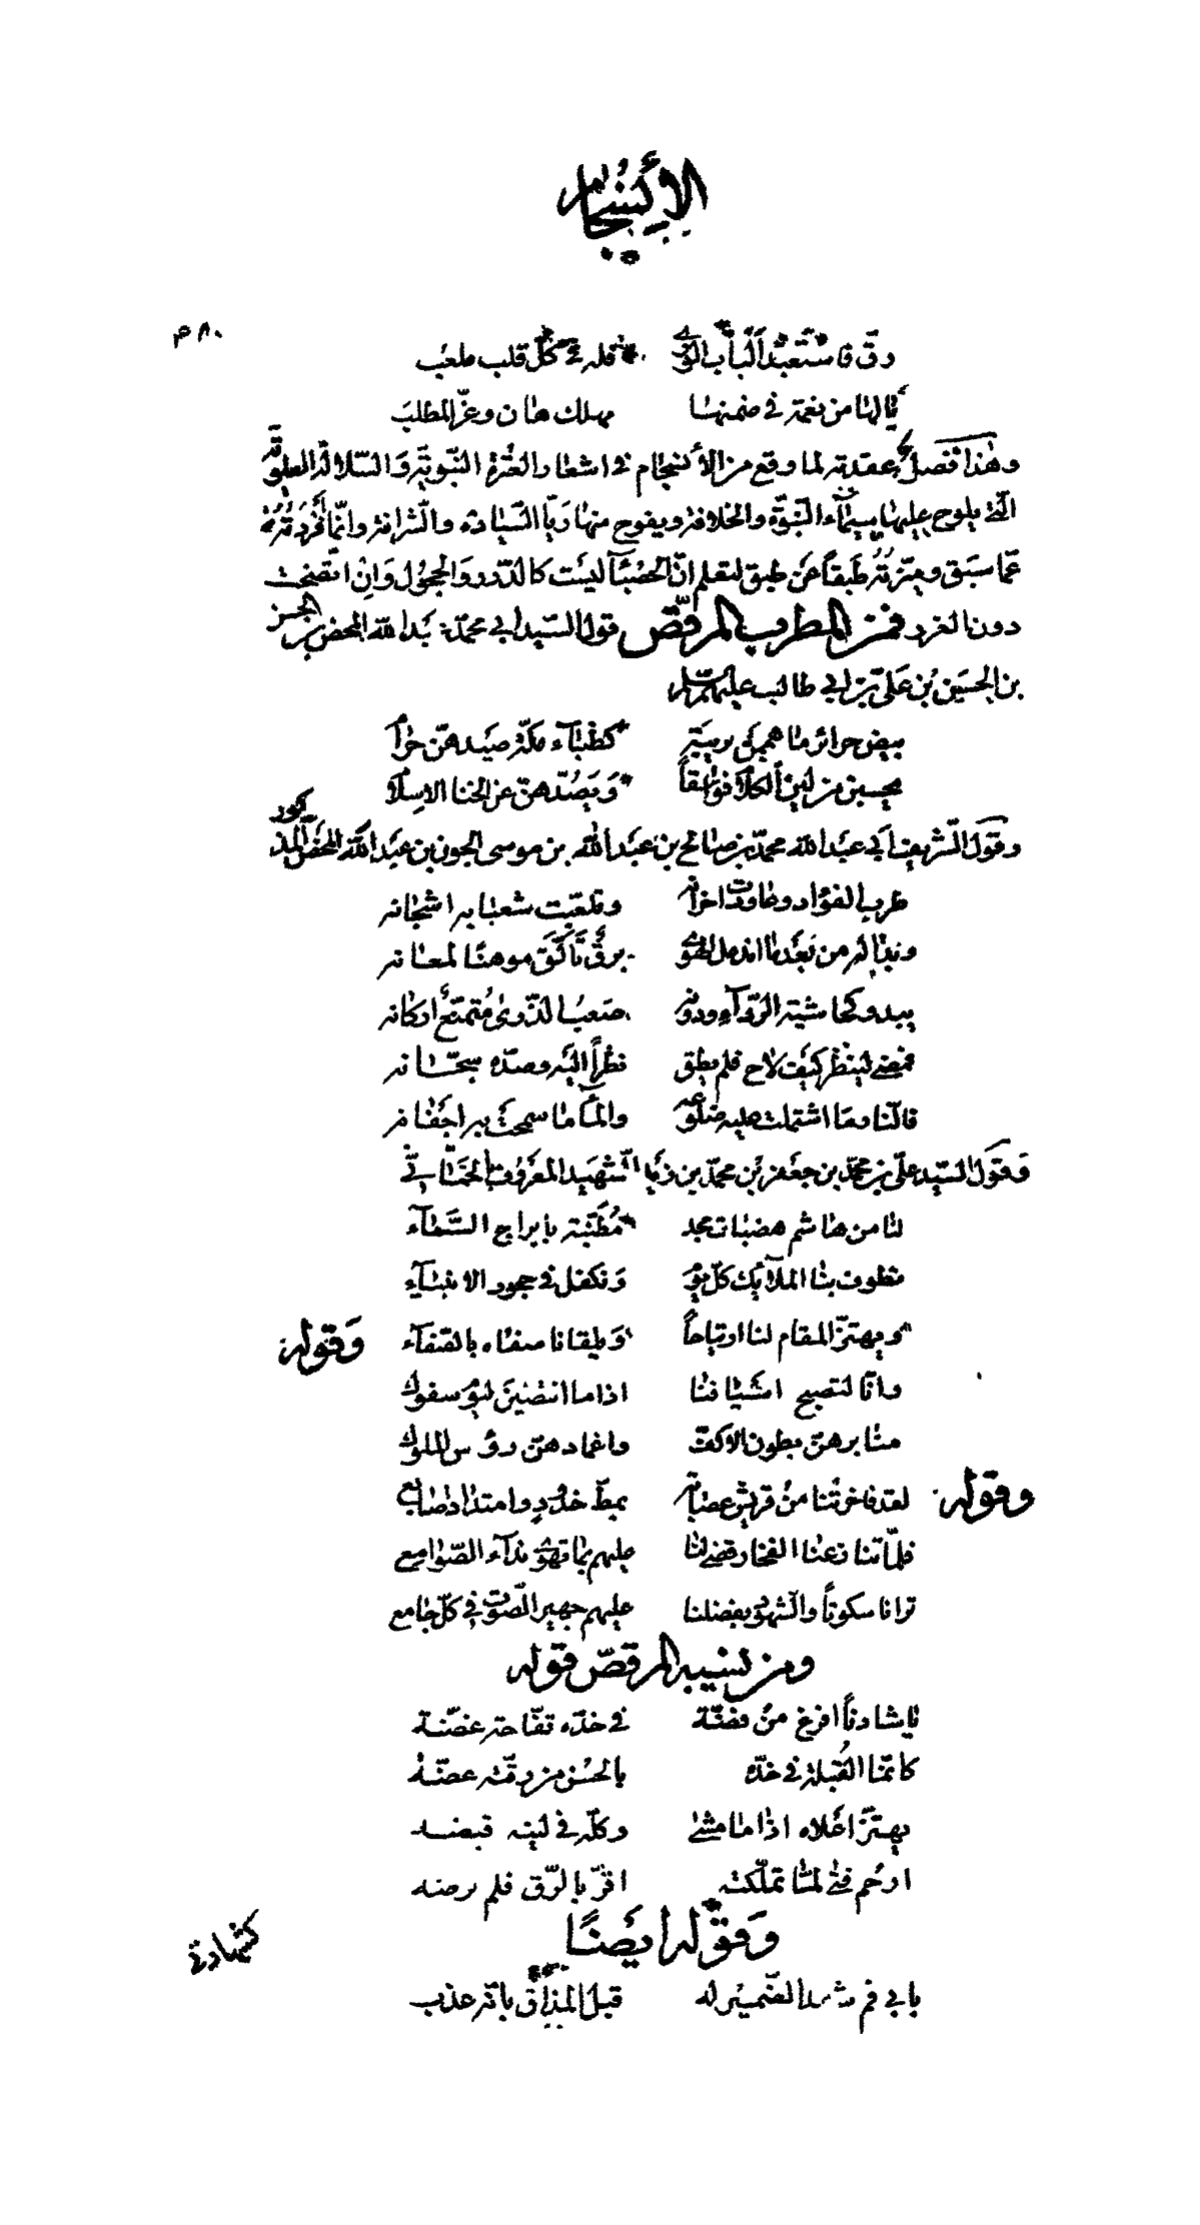 الأنسجام
٣٨٠
رق فاستعبد ألباب الورى فله في كل قلب ملعب
يا لها من نعمة في ضمنها مهلك هان وعز المطلب
وهذا فصل عقدته لما وقع من الأنسجام في اشعار العترة النبوية والسلالة العلوية
التي يلوح عليها سيماء النبوة والخلافة ويفوح منها ريا السيادة والشرافة وانما أفردته
عما سبق وميزته طبقا عن طبق لتعلم ان الحصباء ليست كالدرر والحجول وان اتضحت
دون الغرر فمن المطرب المرقص قول السيد ابي محمد عبد الله المحض بن الحسن
بن الحسين بن علي بن ابي طالب عليهم السلام
بيض حرائر ما هممن بريبة كظباء مكة صيدهن حرام
يحسبن من لين الكلام فواسقاً ويصدهن عن الخنا الاسلام
وقول الشريف ابي عبد الله محمد بن صالح بن عبد الله بن موسى الجون بن عبد الله المحض المذكور
طرب الفؤاد وعاودت احزانه وتلعبت شعبا به اشجانه
وبدا له من بعد ما اندمل الهوى برق تألق موهنا لمعانه
يبدو كحاشية الرداء ودونه صعب الذرى متمنع أركانه
فمضى لينظر كيف لاح فلم يطق نظراً اليه وصده سجانه
فالنار ما اشتملت عليه ضلوعه والماء ما سمحت به اجفانه
وقول السيد علي بن محمد بن جعفر بن محمد بن زيد الشهيد المعروف بالحماني
لنا من هاشم هضبات مجد مطنبة بابراج السماء
تطوف بنا الملائك كل يوم ونكفل في حجور الانبياء
ويهتز المقام لنا ارتياحاً ويلقانا صفاه بالصفاء وقوله
وانا لتصبح اسيافنا اذا ما انتضين ليوم سفوك
منابرهن بطون الاكف واغمادهن رؤس الملوك
وقوله لقد فاخرتنا من قريش عصابة بمط خدود وامتداد اصابع
فلما تنازعنا الفخار قضى لنا عليهم بما نهوى نداء الصوامع
ترانا سكوتاً والشهود بفضلنا عليهم جهير الصوت في كل جامع
ومن نسيبه المرقص قوله
يا شادناً افرغ من فضة في خده تفاحة غضة
كانما القبلة في خده بالحسن من رقته عضة
يهتز اعلاه اذا ما مشى وكله في لينه قبضه
ارحم فتى لما تملكته اقر بالرق فلم ترضه
وقوله ايضا
بابي فم شهد الضمير له قبل المذاق بانه عذب
كشهادة